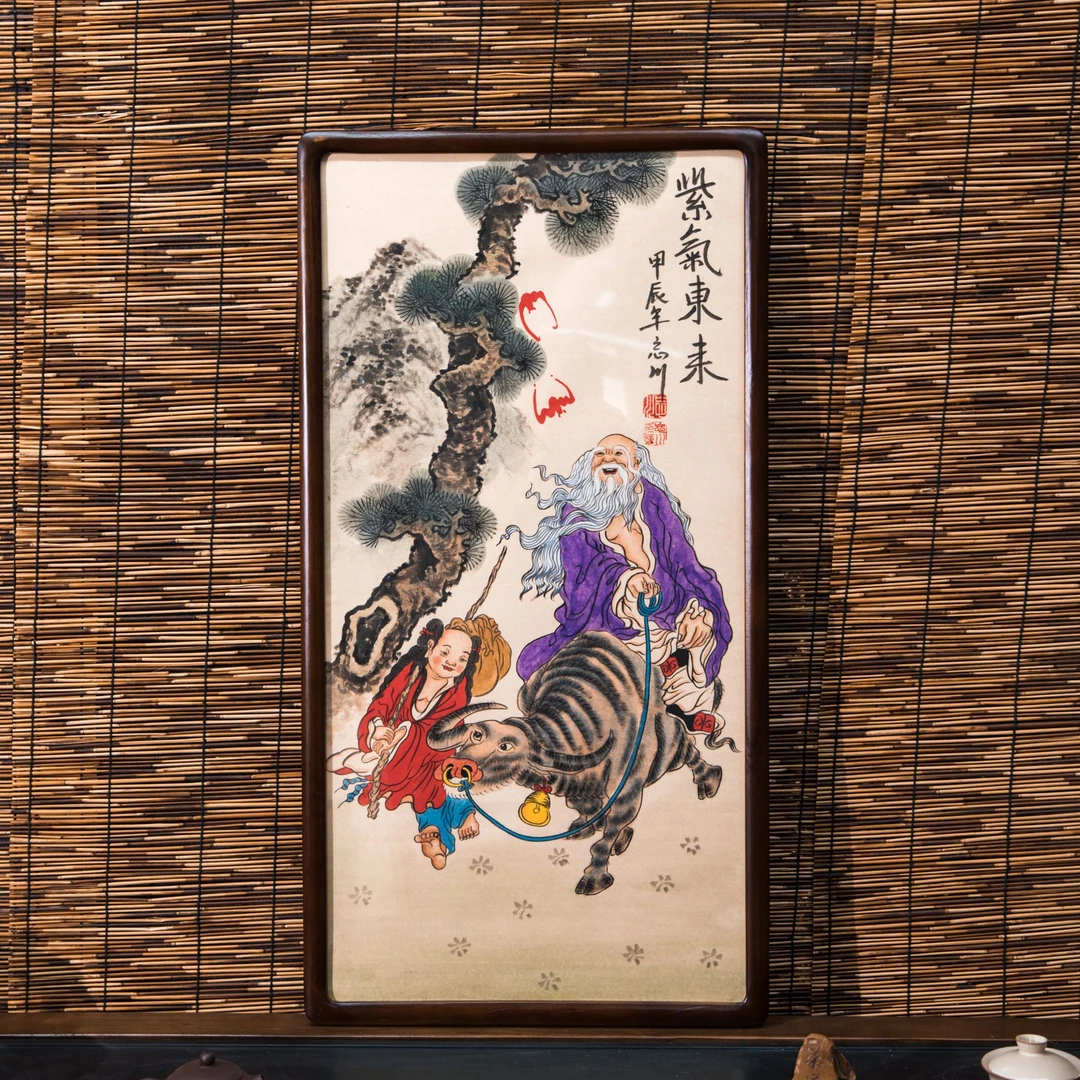 紫氣東来
甲辰年志川